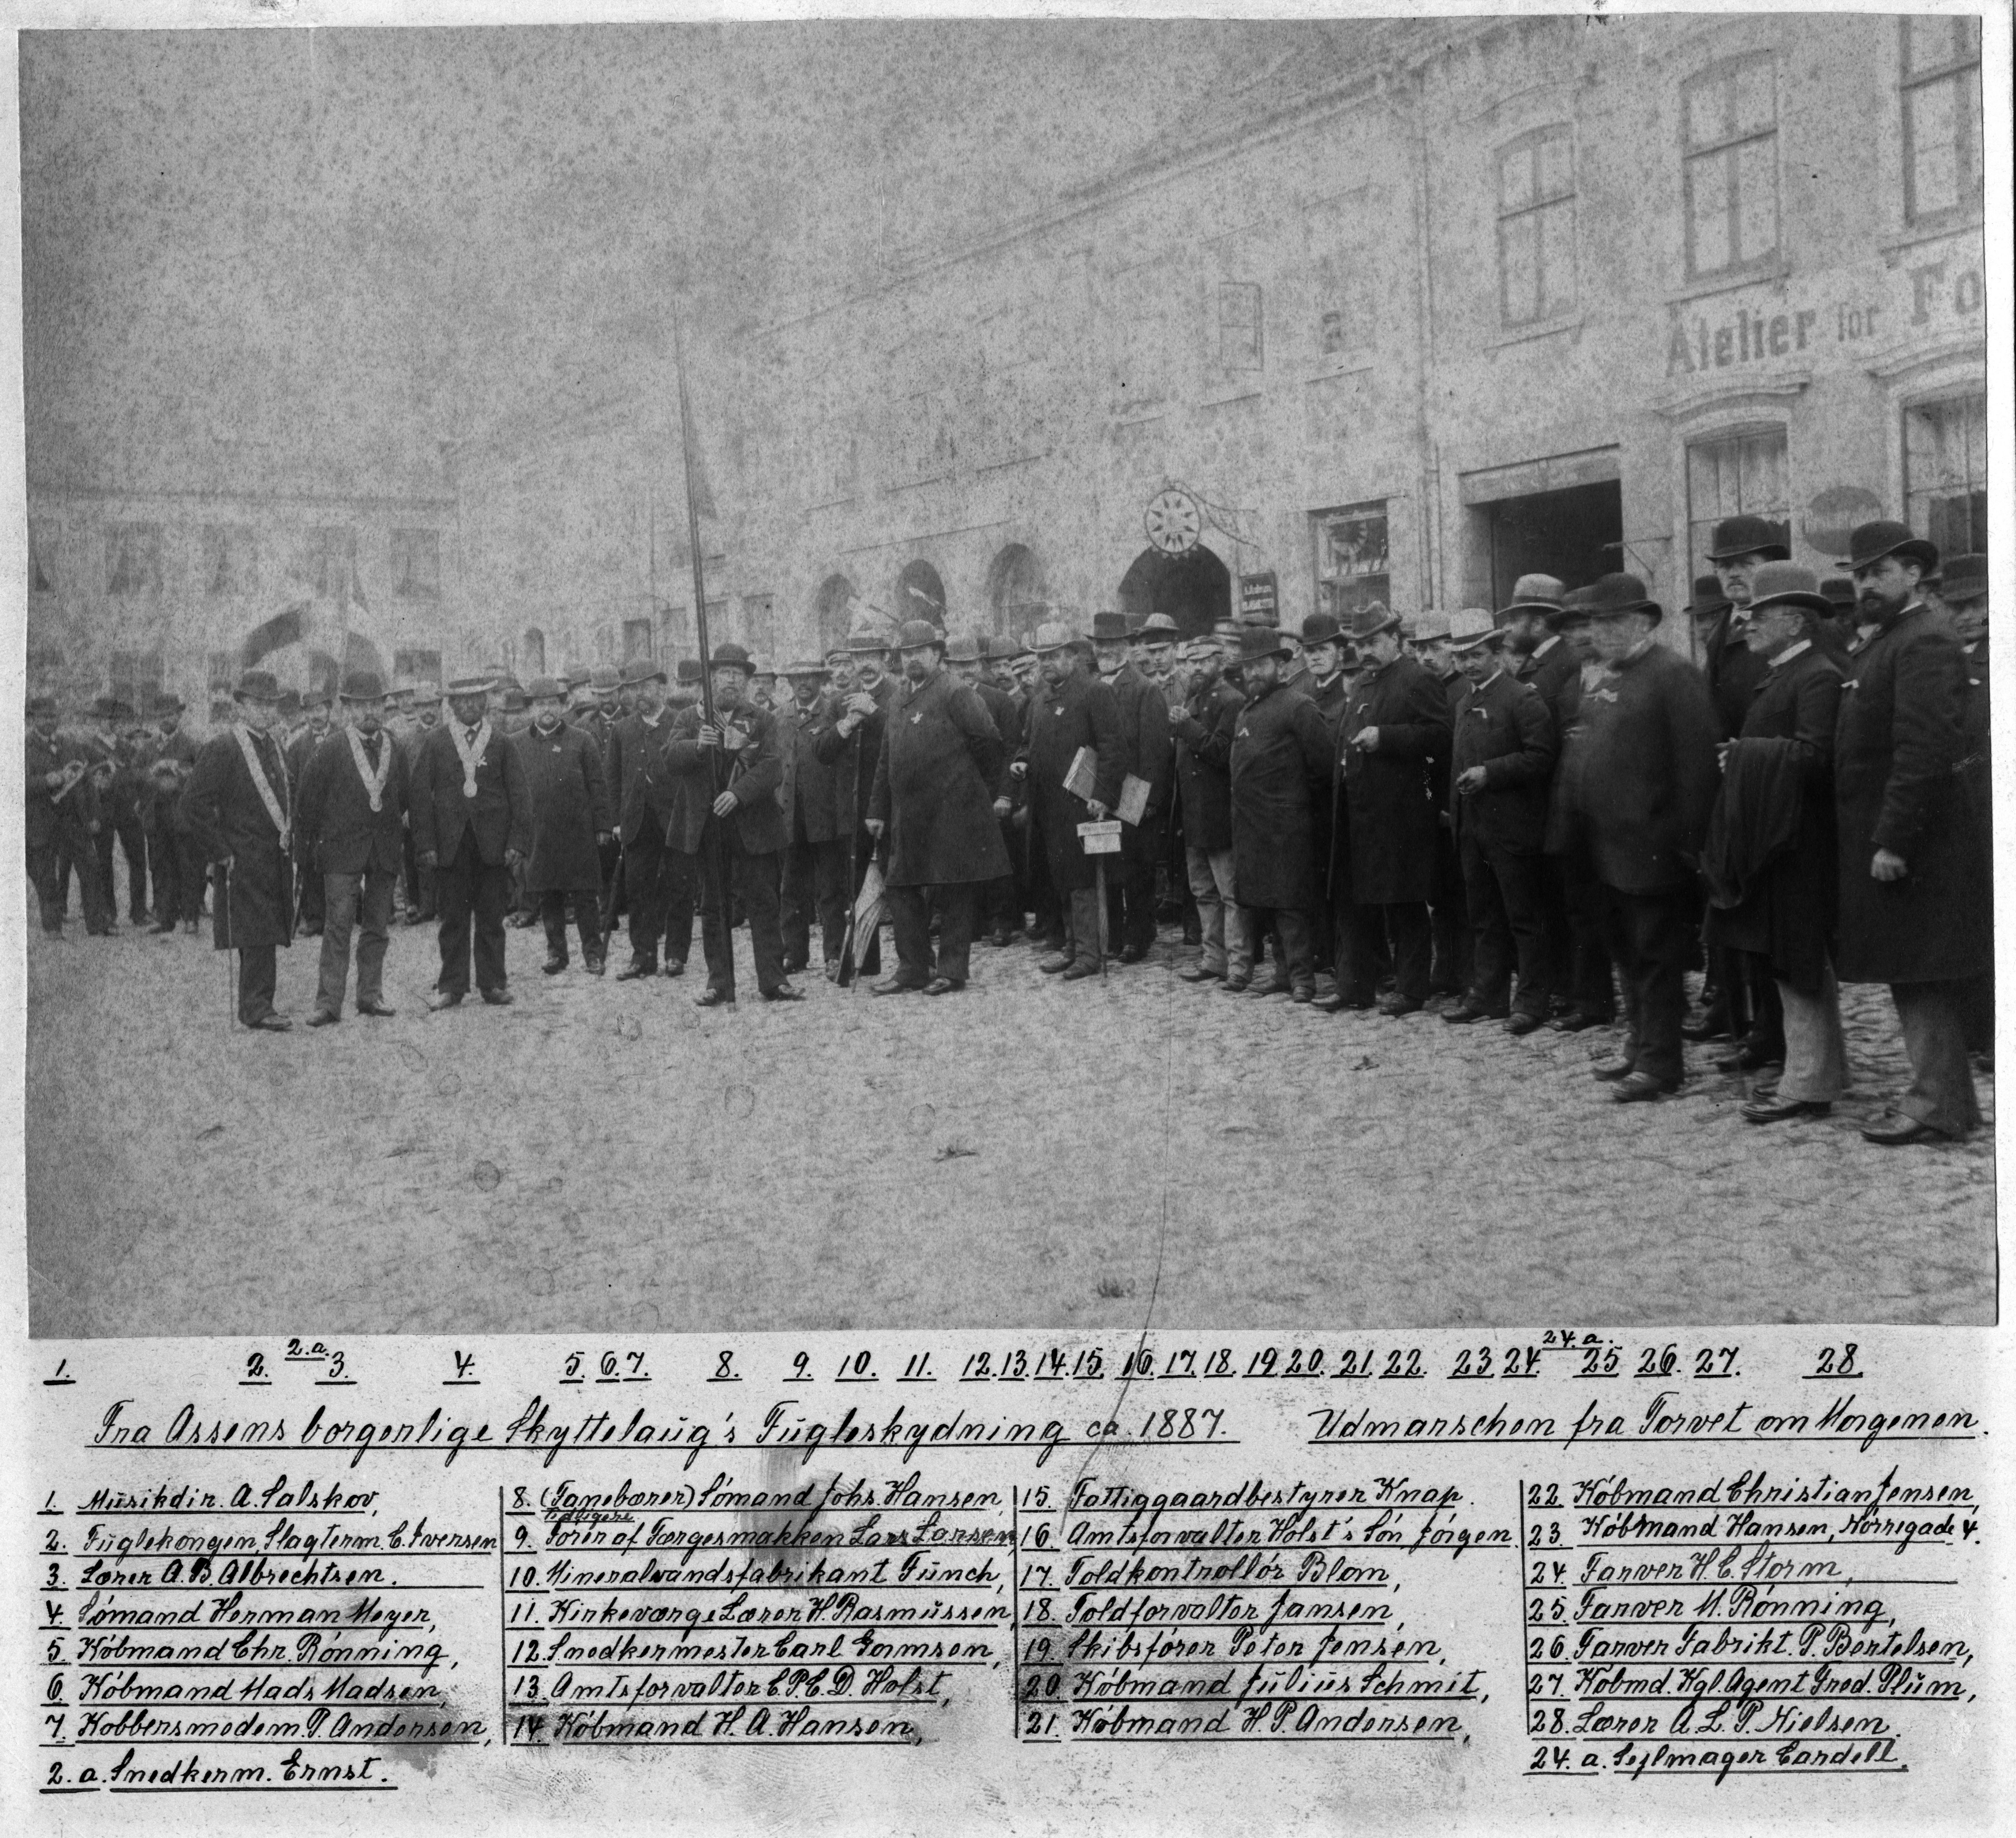 Atelier for Fo
1. 2. 2.a. 3. 4. 5. 6. 7. 8. 9. 10. 11. 12. 13. 14. 15. 16. 17. 18. 19 20. 21. 22. 23 24. 24.a. 25 26. 27. 28.
Fra Assens borgerlige Skyttelaug's Fugleskydning ca. 1887. Udmarschen fra Torvet om Morgenen.
1. Musikdir. A. Salskov,
2. Fuglekongen, Slagterm. C. Iversen
3. Lærer A. B. Albrechtsen.
4. Sömand Herman Meyer,
5. Köbmand Chr. Rönning,
6. Köbmand Mads Madsen,
7. Kobbersmedem. P. Andersen,
2. a. Snedkerm. Ernst.
8. (Fanebærer) Sömand Johs. Hansen,
tidligere
9. Förer af Færgesmakken Lars Larsen,
10. Mineralvandsfabrikant Fünch,
11. Kirkeværge Lærer H. Rasmussen,
12. Snedkermester Carl Gamsen,
13. Amtsforvalter C. P. C. D. Holst,
14. Köbmand H. A. Hansen,
15. Fattiggaardbestyrer Knap.
16. Amtsforvalter Holst's Sön Jörgen.
17. Toldkontrollör Blom,
18. Toldforvalter Jansen,
19. Skibsförer Peter Jensen,
20. Köbmand Julius Schmit,
21. Köbmand H. P. Andersen,
22. Köbmand Christian Jensen,
23. Köbmand Hansen, Nörregade 4.
24. Farver H. C. Storm,
25. Farver M. Rönning,
26. Farver Fabrikt. P. Bertelsen,
27. Köbmd. Kgl. Agent Fred. Plum,
28. Lærer A. L. P. Nielsen.
24. a. Sejlmager Cardell.